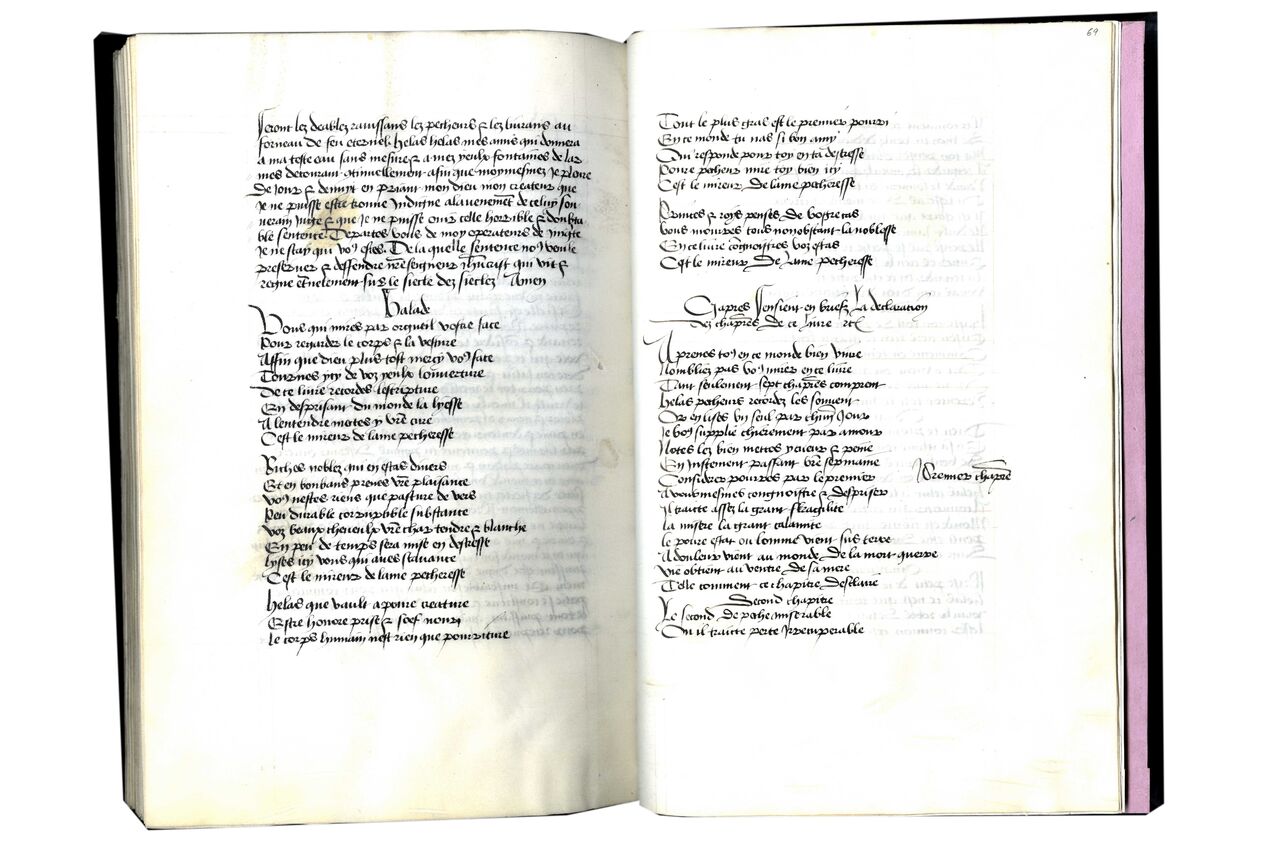 Seront lez deablez rauissans les pecheurs & les liurans au
forneau de feu eternel. helas helas mes amis qui donnera
a ma teste eau sans mesure & a mez yeulx fontaines de lar
mes decourant 9tinuellement afin que moymesmez Je plore
De Jour & de nuyt en priant mon dieu mon createur que
Je ne puisse estre trouue Indigne alauenement de celuy sou
uerain Juge & que Je ne puisse ouir celle horrible & doubta
ble sentence. Departes vous de moy operateurs de
Je ne scay qui vo9 estes. De la quelle sentence no9 veulle
preseruer & deffendre nre seigneur ihucrist qui vit &
regne etnelement sur le siecle dez sieclez Amen
Balade
Vous qui mires par orgueil vostre face
Pour regarder le corps & la vesture
Affin que dieu plus tost mercy vo9 face
Tournes ycy de voz yeulx louuerture
De ce liure recordes lescripture
En desprisant du monde la lyesse
A lentendre mettes y vre cure
Cest le mireur de lame pecheresse
Riches noblez qui en estas diuers
Et en bonbans prenes vre plaisance
Vo9 nestes riens que pasture de vers
Peu durable corruptible substance
Voz beaux cheueulx vre char tendre & blanche
En peu de temps sera mise en destresse
Lyses icy vous qui aues
Cest le mireur de lame pecheresse
helas que vault a poure creature
Estre honore prise & soef nouri
Le corps humain nest rien que pourriture
69
Tout le plus gras est le premier pourri
En ce monde tu nas si bon amy
Qui responde pour toy en ta destresse
Poure pecheur mire toy bien icy
Cest le mireur de lame pecheresse
Princes & roys penses de voz
Vous mourres tous nonobstant la noblesse
En ce liure congnoistres voz estas
Cest le mireur de lame pecheresse
Cy apres Sensuient en brief La declaration
Dez chapres de ce liure
Aprenes to9 en ce monde bien viure
Noubliez pas vo9 mirer en ce liure
Tant seulement sept chapres comprent
helas pecheurs recordez les souuent
Or en lises vn seul par chun Jour
Je vo9 supplie chierement par amour
Notes lez bien mettes y cueur & peine
En Instement passant vre sepmaine
Considerer pourres par le premier
Premier chapre
A vousmesmes congnoistre & despriser
Il traicte assez la grant fragilite
La misere la grant calamite
Le poure estat ou lomme vient sus terre
A douleur vient au monde de la mort querre
Vie obtient au ventre de sa mere
Telle comment ce chapitre declaire
Second chapitre
Le second de peche miserable
Ou il traicte perte Irrecuperable